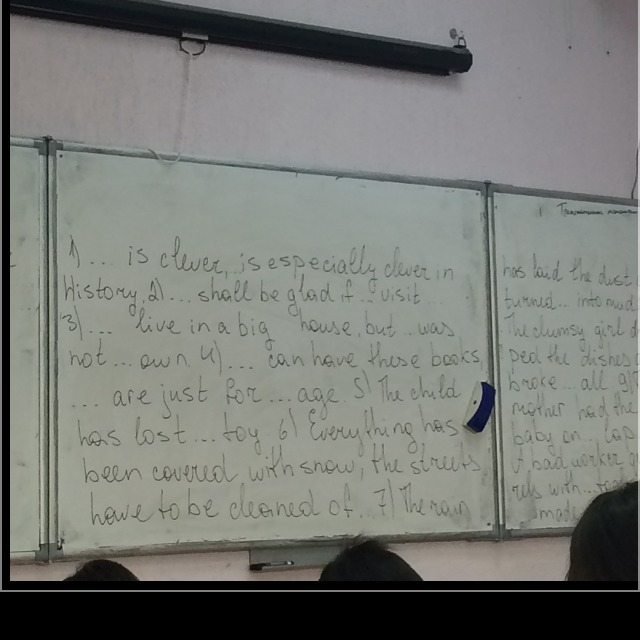 1) ... is clever, is especially clever in
History. 2) ... shall be glad if ... visit ...
3) ... live in a big house, but ... was
not ... own. 4) ... can have these books
... are just for ... age. 5) The child
has lost ... toy. 6) Everything has
been covered with snow, the streets
have to be cleaned of ... 7) The rain
has laid the dust
turned ... into mud
The clumsy girl
ped the dishes
broke ... all
mother had the
baby on ... lap
A bad worker
rels with ...
made